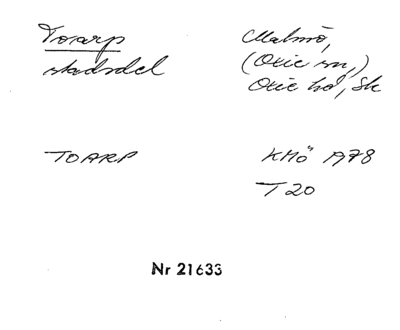 Toarp Malmö,
stadsdel (Oxie sn,)
Oxie hd, Sk
TOARP KMÖ 1978
T 20
Nr 21633